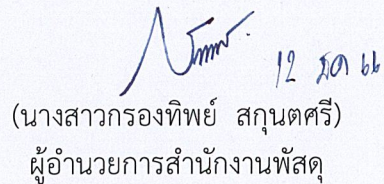 12 ธค 66
(นางสาวกรองทิพย์ สกุนตศรี)
ผู้อำนวยการสำนักงานพัสดุ